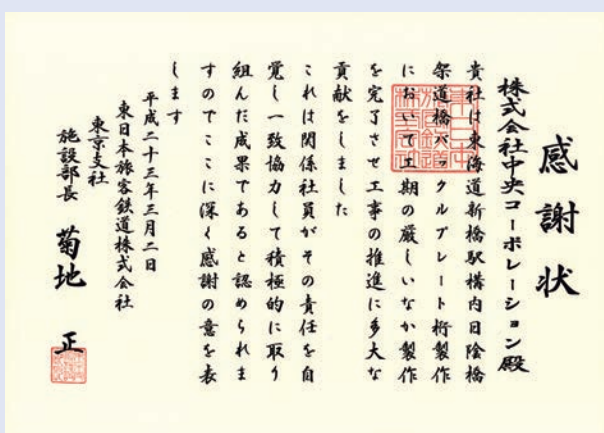 感謝状
株式会社中央コーポレーション殿
貴社は東海道新橋駅構内日陰橋
架道橋バックルプレート桁製作
において工期の厳しいなか製作
を完了させ工事の推進に多大な
貢献をしました
これは関係社員がその責任を自
覚し一致協力して積極的に取り
組んだ成果であると認められま
すのでここに深く感謝の意を表
します
平成二十三年三月二日
東日本旅客鉄道株式会社
東京支社
施設部長 菊地 正